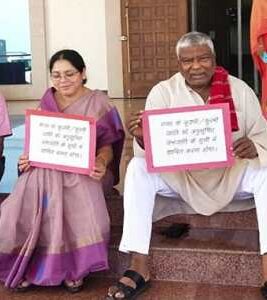 के कुड़मी/कुरमी
जाति को अनुसूचित
जनजाति की सूची में
शामिल करना होगा।
के कुड़मी/कुरमी
जाति को अनुसूचित
जनजाति की सूची में
शामिल करना होगा।